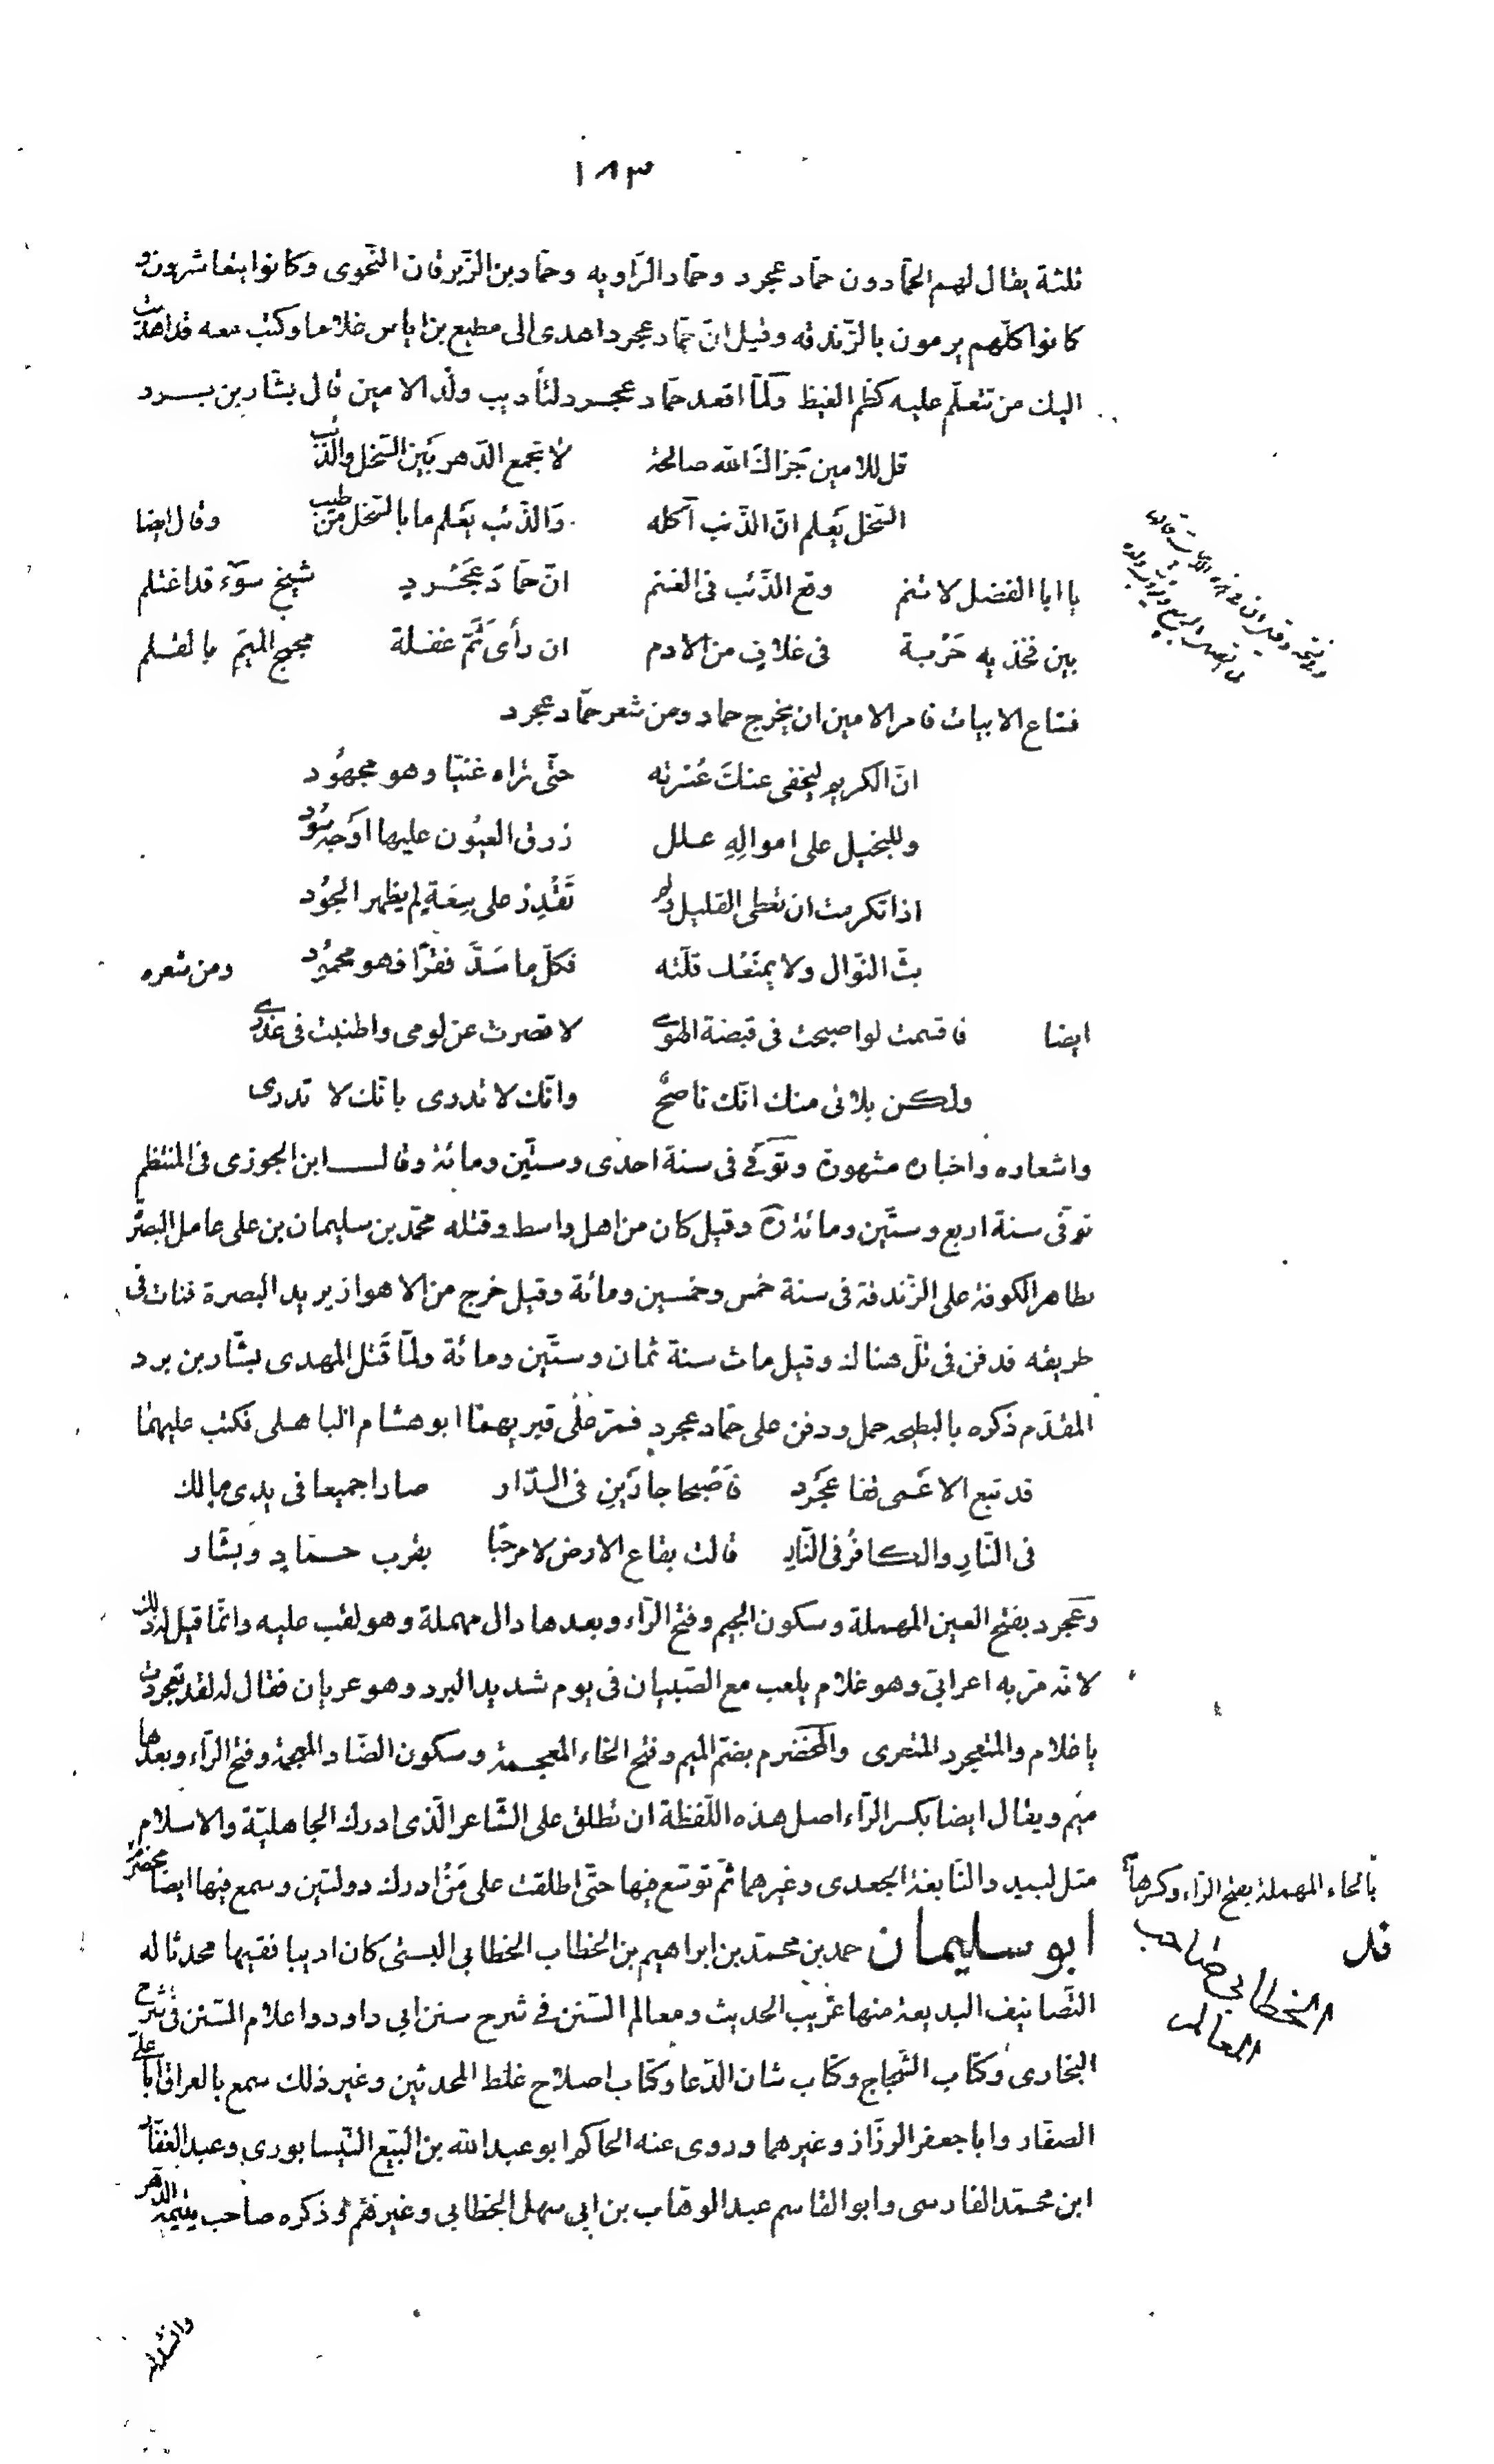 ١٨٣
ثلثة يقال لهم الحمّادون حمّاد عجرد وحمّاد الرّاويه وحمّاد بن الزّبرقان النّحوى وكانوا يتعاشرون و
كانوا كلّهم يرمون بالزّندقه وقيل انّ حمّاد عجرد اهدى الى مطيع بن اياس غلاما وكتب معه قد اهديت
اليك من تتعلّم عليه كظم الغيظ ولمّا اقعد حمّاد عجرد لتأديب ولد الامين قال بشّار بن برد
قل للامين جَزاك الله صالحة لا تجمع الدّهر بَين السّخل والذّئب
السّخل يَعلم انّ الذّئب آكله وَالذّئب يَعلم ما بالسّخل من طيب وقال ايضا
يا ابا الفضل لا تنم وقع الذّئب فى الغنم انّ حمّادَ عَجْردٍ شيخ سوْء قد اغتلم
بين فخذيه حَرْبة فى غلافٍ من الادم ان رأى ثَمّ غفلة مجمج الميمَ بالقلم
فشاع الابيات فامر الامين ان يخرج حماد ومن شعر حمّاد عجرد
انّ الكريم ليخفى عنكَ عُسْرته حتّى تراه غنيّا وهو مجهُود
وللبخيل على اموالِهِ علل زرق العيُون عليها اوجه سُود
اذا تكرمت ان تعطى القليل ولم تَقْدِرْ على سِعَةٍ لم يظهر الجُود
بثّ النّوال ولا يمنَعْك قلّته فكلّ ما سَدَّ فقرًا فهو محمُود ومن شعره
ايضا فاقسمت لو اصبحت فى قبضة الهوى لاقصرت عن لومى واطنبت فى عذرى
ولكن بلائى منك انّك ناصحٌ وانّك لا تدرى بانّك لا تدرى
واشعاره واخباره مشهورة وتوفّى فى سنة احدى وستّين ومائة وقال ابن الجوزى فى المنتظم
توفّى سنة اربع وستّين ومائة وقيل كان من اهل واسط وقتله محمّد بن سليمان بن على عامل البصرة
بظاهر الكوفة على الزّندقة فى سنة خمس وخمسين ومائة وقيل خرج من الاهواز يريد البصرة فمات فى
طريقه فدفن فى تلّ هناك وقيل مات سنة ثمان وستّين ومائة ولمّا قَتل المهدى بشّار بن برد
المقدّم ذكره بالبطيحه حمل ودفن على حمّاد عجرد فمرّ على قبريهما ابو هشام الباهلى فكتب عليهما
قد تبع الاعَمى قفا عَجْرَد فاَصْبحا جارَينِ فى الدّار صارا جميعا فى يدى مالك
فى النّارِ والكافُر فى النّار قالت بقاع الارض لا مرحبًا بقرب حمّادٍ وبشّار
وعَجرد بفتح العين المهملة وسكون الجيم وفتح الرّاء وبعدها دال مهملة وهو لقب عليه وانّما قيل له ذلك
لانّه مرّ به اعرابىّ وهو غلام يلعب مع الصّبيان فى يوم شديد البرد وهو عريان فقال له لقد تعجردت
يا غلام والمتعجرد المتعرى والمخضرم بضمّ الميم وفتح الخاء المعجمة وسكون الضّاد المعجمة وفتح الرّاء وبعدها
ميم ويقال ايضا بكسر الرّاء اصل هذه اللّفظة ان تطلق على الشّاعر الّذى ادرك الجاهليّة والاسلام
مثل لبيد والنّابغة الجعدى وغيرهما ثمّ توسّع فيها حتّى اطلقت على مَنْ ادرك دولتين وسمع فيها ايضا محضرم
بالحاء المهملة بفتح الرّاء وكسرها
ابو سليمان حمد بن محمّد بن ابراهيم بن الخطاب الخطابى البستى كان اديبا فقيها محدثا له
الخطابى صاحب المعالم
التّصانيف البديعة منها غريب الحديث ومعالم السّنن فى شرح سنن ابى داود واعلام السّنن فى شرح
البخارى وكتاب الشّجاج وكتاب شان الدّعا وكتاب اصلاح غلط المحدثين وغير ذلك سمع بالعراق ابا على
الصفّار وابا جعفر الرزّاز وغيرهما وروى عنه الحاكم ابو عبد الله بن البيّع النّيسابورى وعبد الغفّار
ابن محمّد الفارسى وابو القاسم عبد الوهّاب بن ابى سهل الخطابى وغيرهم وذكره صاحب يتيمة الدّهر